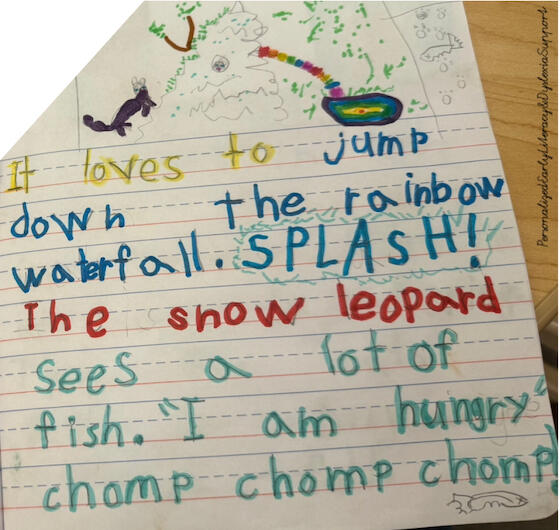 It loves to jump
down the rainbow
waterfall. SPLASH!
The snow leopard
sees a lot of
fish. "I am hungry"
chomp chomp chomp
PersonalizedEarlyLiteracy&DyslexiaSupport